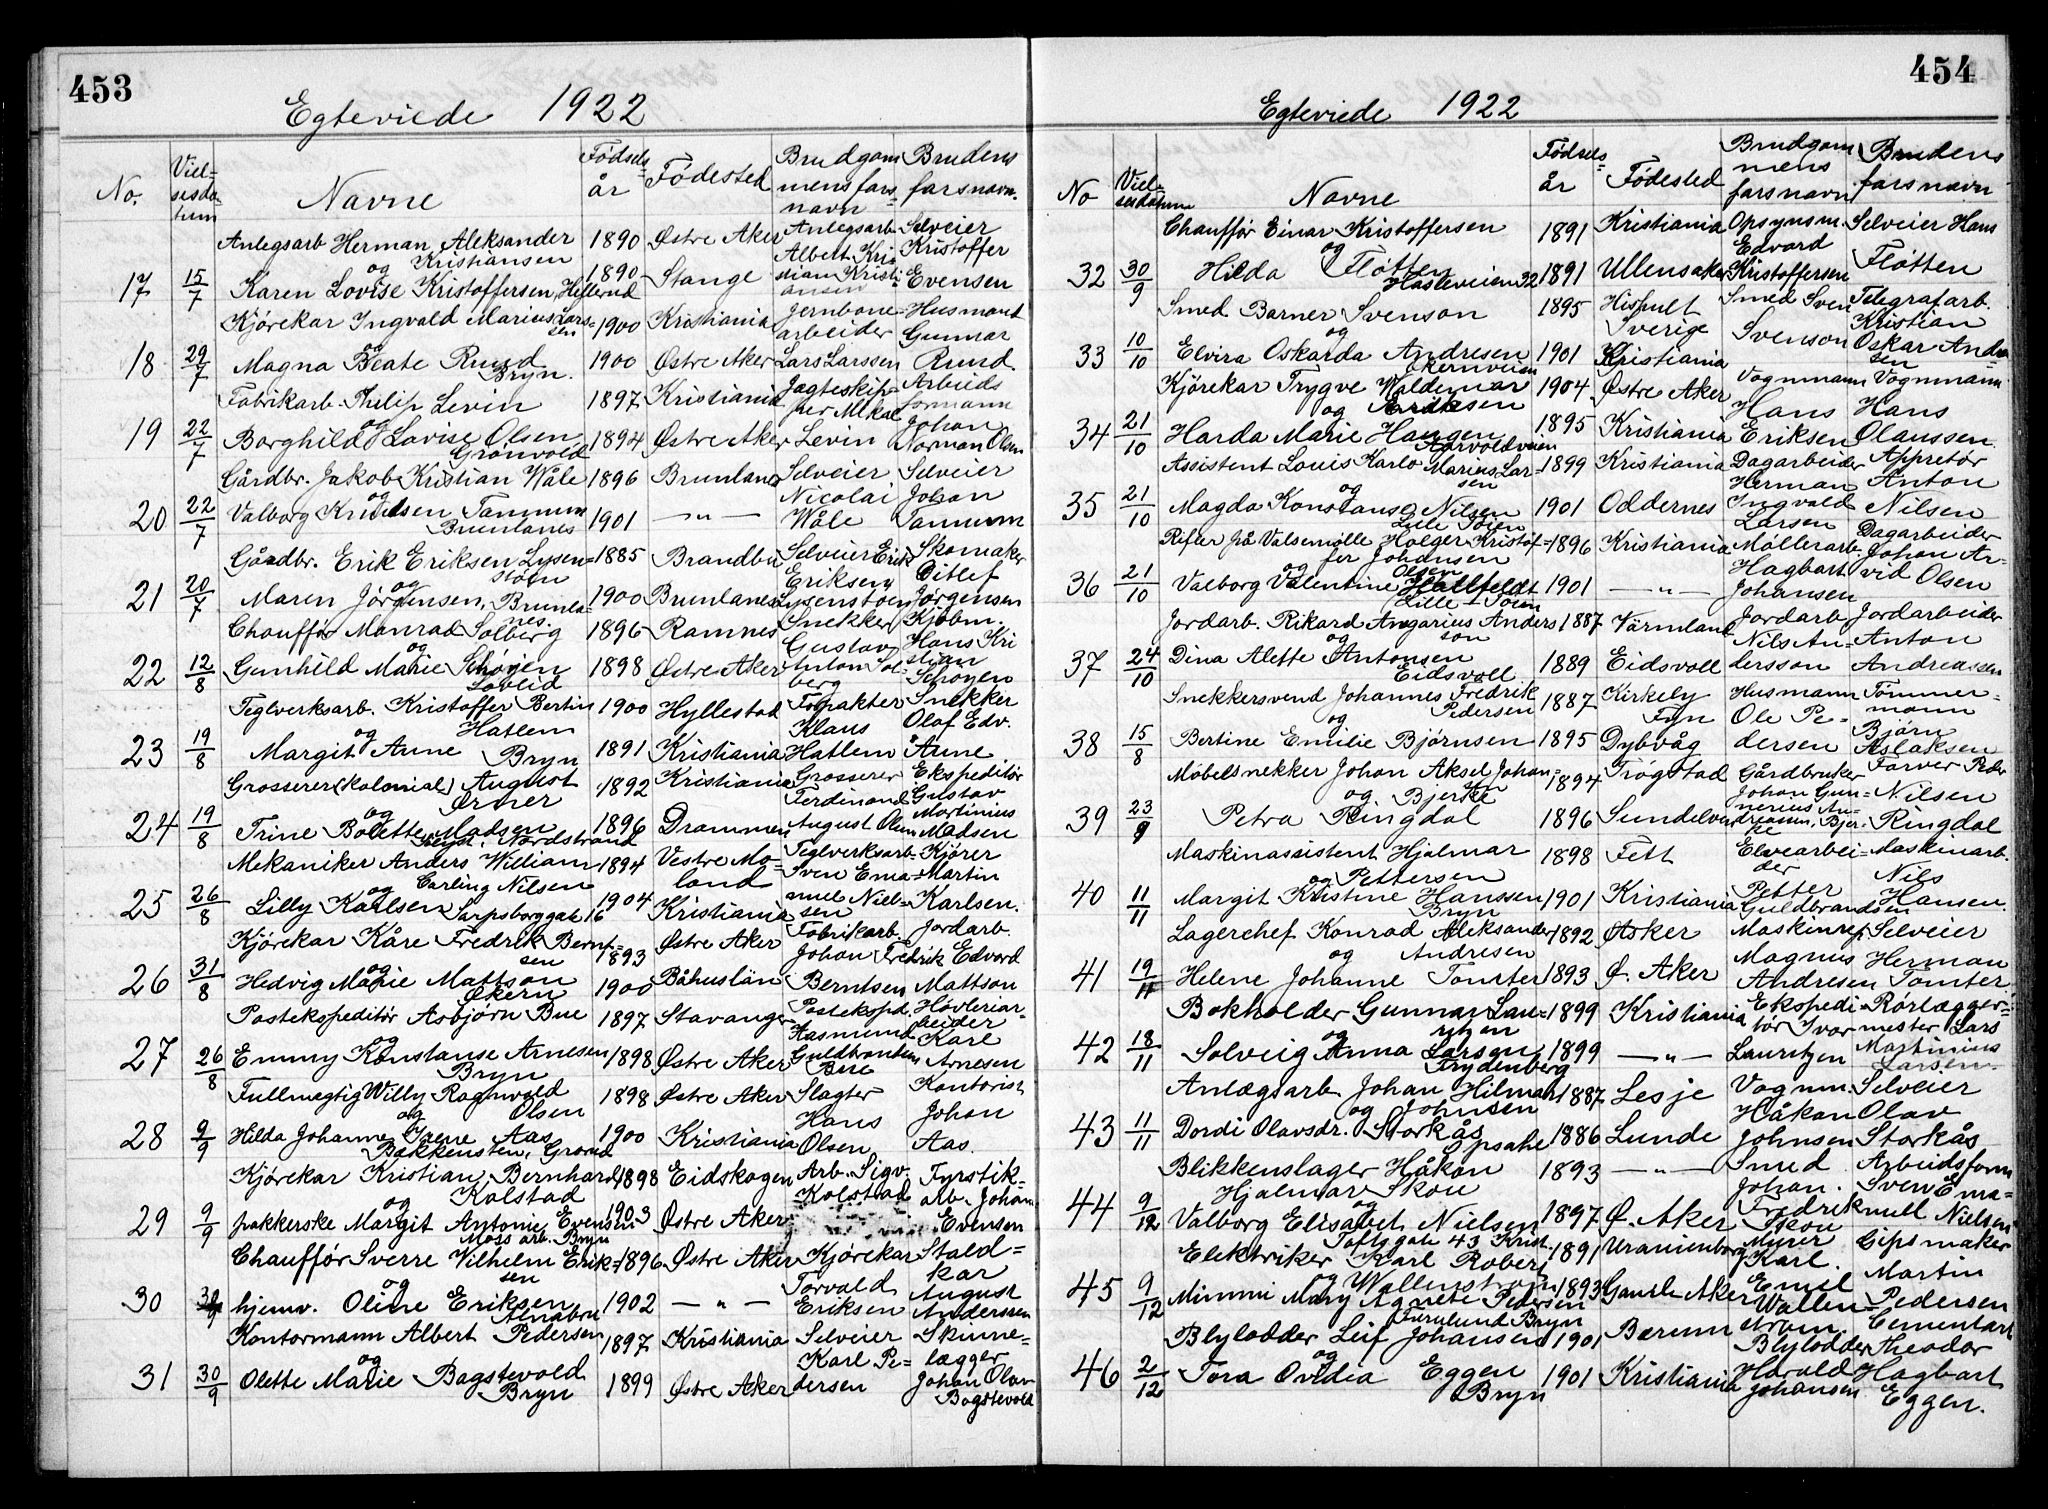 453
Egteviede 1922
No. Viel-sesda-tum Navne Fødsels-år Fødested Brudgom-mens fars-navn Brudens farsnavn.
Anlegsarb Herman Aleksander Kristiansen 1890 Østre Aker Anlegsarb Albert Kristian Kristiansen Selveier Kristoffer Evensen
17 15/7 og Karen Lovise Kristoffersen, Hellerud 1890 Stange
Kjørekar Ingvald Marius Larssen 1900 Kristiania Jernbanearbeider Lars Larssen Husmand Gunnar Ruud.
18 29/7 og Magna Beate Ruud Bryn. 1900 Østre Aker
Fabrikarb. Philip Levin 1897 Kristiania Jagteskipper Mikal Levin Arbeidsformann Johan Norman Olsen
19 22/7 og Borghild Lovise Olsen Grønvold 1894 Østre Aker
Gårdbr. Jakob Kristian Wåle 1896 Brunlanes Selveier Nicolai Wåle Selveier Johan Tannum
20 22/7 og Valborg Knudsen Tannum Brunlanes 1901 — " —
Gårdbr. Erik Eriksen Lysenstøen 1885 Brandbu Selveier Erik Eriksen Lysenstøen Skomaker Ditlef Jørgensen
21 20/7 og Maren Jørgensen, Brunlanes. 1900 Brunlanes
Chauffør Monrad Solberg 1896 Ramnes Snekker Gustav Anton Solberg Kjøbm. Hans Kristian Schøyen
22 12/8 og Gunhild Marie Schøyen Løvlid 1898 Østre Aker
Teglverksarb. Kristoffer Bertin Hatlem 1900 Hyllestad Forpakter Klaus Hatlem Snekker Olaf Edv. Aune
23 19/8 og Margit Aune Bryn 1891 Kristiania
Grosserer (kolonial) August Ørner 1892 Kristiania Grosserer Ferdinand August Ekspeditør Gustav Martinius Madsen
24 19/8 og Trine Bolette Madsen Nordstrand 1896 Drammen
Mekaniker Anders William Carling Nilsen 1894 Vestre Moland Teglverksarb. Sven Emanuel Nielsen Kjører Martin Karlsen.
25 26/8 og Lilly Karlsen Sarpsborggat 16 1904 Kristiania
Kjørekar Kåre Fredrik Berntsen 1893 Østre Aker Fabrikarb. Johan Fredrik Berntsen Jordarb. Edvard Mattson
26 31/8 og Hedvig Marie Mattson Økern 1900 Båhuslän
Postekspeditør Asbjørn Bue 1897 Stavanger Postekspd. Aasmund Guldbrandsen Bue Høvleriarbeider Karl Arnesen
27 26/8 og Emmy Konstanse Arnesen Bryn 1898 Østre Aker
Fullmægtig Willy Ragnvald Olsen 1898 Østre Aker Slagter Hans Olsen Kontorist Johan Aas.
28 9/9 og Hilda Johanne Irene Aas Bakkensten, Grorud 1900 Kristiania
Kjørekar Kristian Bernhard Kolstad 1898 Eidskogen Arb. Sigv. Kolstad Fyrstikarb. Johan Evensen
29 9/9 og pakkerske Margit Antonie Evensen Moss arb. Bryn 1903 Østre Aker
Chauffør Sverre Vilhelm Eriksen 1896 Østre Aker Kjørekar Torvald Eriksen Staldkar August Anderssen
30 og hjemv. Oline Eriksen Alnabru 1902 — " —
Kontormann Albert Pedersen 1897 Kristiania Selveier Karl Pedersen Skinnelægger Johan Olav Bogstevold
31 30/9 og Olette Marie Bogstevold Bryn 1899 Østre Aker
454
Egteviede 1922
No Viel-sesdatum Navne Fødsels-år Fødested Brudgommens farsnavn Brudens farsnavn
Chauffør Einar Kristoffersen 1891 Kristiania Opsynsm. Edvard Kristoffersen Selveier Hans Fløtten
32 30/9 og Hilda Fløtten Hasleveien 32 1891 Ullensaker
Smed Barner Svenson 1895 Hishult Sverige Smed Sven Svenson Telegrafarb. Kristian Oskar Andresen
33 10/10 og Elvira Oskarda Andresen Økernveien 1901 Kristiania
Kjørekar Trygve Waldemar Eriksen 1904 Østre Aker Vognmann Hans Eriksen Vognmann Hans Olaussen.
34 21/10 og Harda Marie Haugen Aarvoldveien 1895 Kristiania
Assistent Louis Karlo Marius Larsen 1899 Kristiania Dagarbeider Herman Ingvald Larsen Appretør Anton Nilsen
35 21/10 og Magda Konstanse Nilsen Lille Tøien 1901 Oddernes
Rifler på Valsemølle Holger Kristoffer Johansen 1896 Kristiania Møllerarb. Hagbart Johansen Dagarbeider Johan Arvid Olsen
36 21/10 og Valborg Valentine Olsen Hallfeldt Lille-Tøien 1901 — " —
Jordarb. Rikard Angarius Anderson 1887 Värmland Jordarb Nils Andersson Jordarbeider Anton Andreassen
37 24/10 og Dina Alette Antonsen Eidsvoll 1889 Eidsvoll
Snekkersvend Johannes Fredrik Pedersen 1887 Kirkeby Fyn Husmann Ole Pedersen Tømmermann Bjørn Aslaksen
38 15/8 og Bertine Emilie Bjørnsen 1895 Dybvåg
Møbelsnekker Johan Aksel Johan Bjerke 1894 Trøgstad Gårdbruker Johan Gunnerius Andreassen Bjerke Farver Peder Nilsen Ringdal
39 23/9 og Petra Ringdal 1896 Sundelven
Maskinassistent Hjalmar Pettersen 1898 Fett Elvearbeider Petter Guldbrandsen Maskinarb. Nils Hansen.
40 11/11 og Margit Kristine Hanssen Bryn 1901 Kristiania
Lagerchef Konrad Aleksander Andresen 1892 Asker Maskinrep. Magnus Andresen Selveier Herman Tomter.
41 19/11 og Helene Johanne Tomter 1893 Ø. Aker
Bokholder Gunnar Lauritzen 1899 Kristiania Ekspeditør Ivar Lauritzen Rørlæggermester Lars Martinius Larsen.
42 18/11 og Solveig Anna Larsen Frydenberg 1899 — " —
Anlægsarb. Johan Hilmar Johnsen 1887 Lesje Vognm. Håkan Johnsen Selveier Olav Storkås
43 11/11 og Dordi Olavsdr. Storkås Opsahl 1886 Lunde
Blikkenslager Håkon Hjalmar Skou 1893 — " — Smed Johan. Fredrik Skou Arbeidsform Sven Emanuell Nielsen
44 9/12 og Valborg Elisabet Nielsen Toftsgate 43 Krist. 1897 Ø. Aker
Elektriker Karl Robert Wallenstrøm 1891 Uranienborg Murer Karl. Emil Wallenstrøm Gipsmaker Martin Pedersen
45 9/12 og Mimmi Mary Agnete Pedersen Furulund Bryn 1893 Gamle Aker
Blylodder Leif Johansen 1901 Bærum Blylodder Harald Johansen Cementarb Theodor Hagbart Eggen.
46 2/12 og Tora Ovidia Eggen Bryn 1901 Kristiania